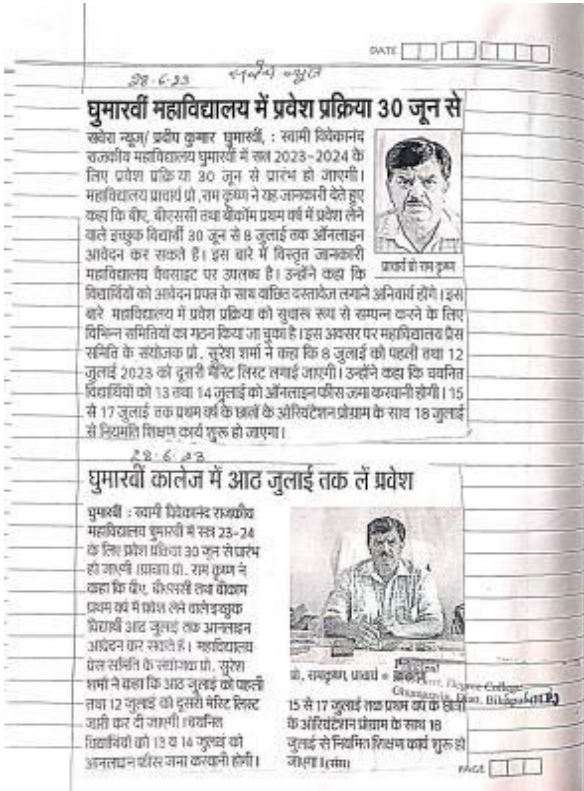 DATE
28-6-23 सवेरा न्यूज
घुमारवीं महाविद्यालय में प्रवेश प्रक्रिया 30 जून से
सवेरा न्यूज/ प्रदीप कुमार घुमारवीं, : स्वामी विवेकानंद
राजकीय महाविद्यालय घुमारवीं में सत्र 2023-2024 के
लिए प्रवेश प्रक्रि या 30 जून से प्रारंभ हो जाएगी।
महाविद्यालय प्राचार्य प्रो ,राम कृष्ण ने यह जानकारी देते हुए
कहा कि बीए, बीएससी तथा बीकॉम प्रथम वर्ष में प्रवेश लेने
वाले इच्छुक विद्यार्थी 30 जून से 8 जुलाई तक ऑनलाइन
आवेदन कर सकते हैं। इस बारे में विस्तृत जानकारी
महाविद्यालय वैबसाइट पर उपलब्ध है। उन्होंने कहा कि
प्राचार्य प्रो राम कृष्ण
विद्यार्थियों को आवेदन प्रपत्र के साथ वांछित दस्तावेज लगाने अनिवार्य होंगे। इस
बारे महाविद्यालय में प्रवेश प्रक्रिया को सुचारू रूप से सम्पन्न करने के लिए
विभिन्न समितियों का गठन किया जा चुका है। इस अवसर पर महाविद्यालय प्रैस
समिति के संयोजक प्रो. सुरेश शर्मा ने कहा कि 8 जुलाई को पहली तथा 12
जुलाई 2023 को दूसरी मैरिट लिस्ट लगाई जाएगी। उन्होंने कहा कि चयनित
विद्यार्थियों को 13 तथा 14 जुलाई को ऑनलाइन फीस जमा करवानी होगी। 15
से 17 जुलाई तक प्रथम वर्ष के छात्रों के ओरियंटेशन प्रोग्राम के साथ 18 जुलाई
से नियमति शिक्षण कार्य शुरू हो जाएगा।
28-6-23
घुमारवीं कालेज में आठ जुलाई तक लें प्रवेश
घुमारवीं : स्वामी विवेकानंद राजकीय
महाविद्यालय घुमारवीं में सत्र 23-24
के लिए प्रवेश प्रक्रिया 30 जून से प्रारंभ
हो जाएगी। प्राचार्य प्रो. राम कृष्ण ने
कहा कि बीए, बीएससी तथा बीकाम
प्रथम वर्ष में प्रवेश लेने वाले इच्छुक
विद्यार्थी आठ जुलाई तक आनलाइन
आवेदन कर सकते हैं। महाविद्यालय
प्रेस समिति के संयोजक प्रो. सुरेश
शर्मा ने कहा कि आठ जुलाई को पहली
तथा 12 जुलाई को दूसरी मेरिट लिस्ट
जारी कर दी जाएगी। चयनित
विद्यार्थियों को 13 व 14 जुलाई को
आनलाइन फीस जमा करवानी होगी।
प्रो. रामकृष्ण, प्राचार्य
15 से 17 जुलाई तक प्रथम वर्ष के छात्रों
के ओरियंटेशन प्रोग्राम के साथ 18
जुलाई से नियमित शिक्षण कार्य शुरू हो
जाएगा।
Principal
Degree College
Distt. Bilaspur (H.P.)
PAGE